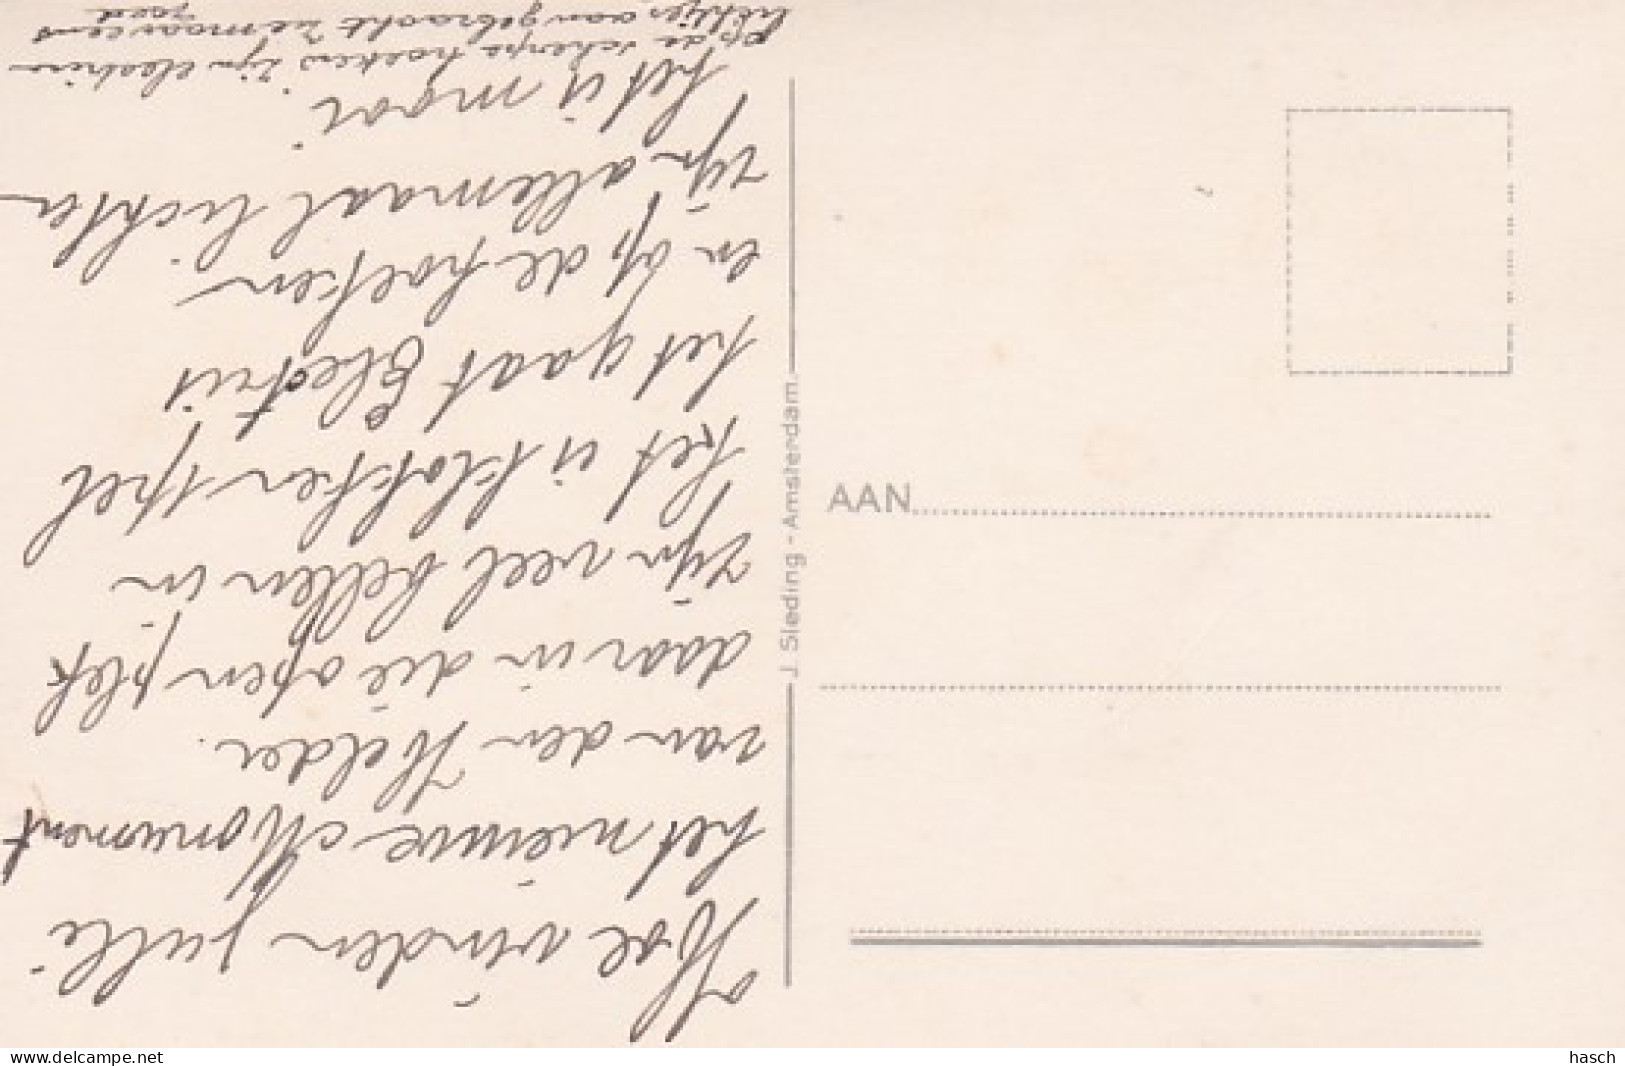 Hoe vinden jullie
het nieuwe Monument
van den Helder.
daar in die open plek
zijn veel bellen in
het is klokken spel
het gaat Electries
en op de hoeken
zijn allemaal lichten
het is mooi
Op de scherpe hoeken zijn electrise
lichtjes aan gebracht ze maar eens
goed
J. Sleding - Amsterdam.
AAN
www.delcampe.net
hasch